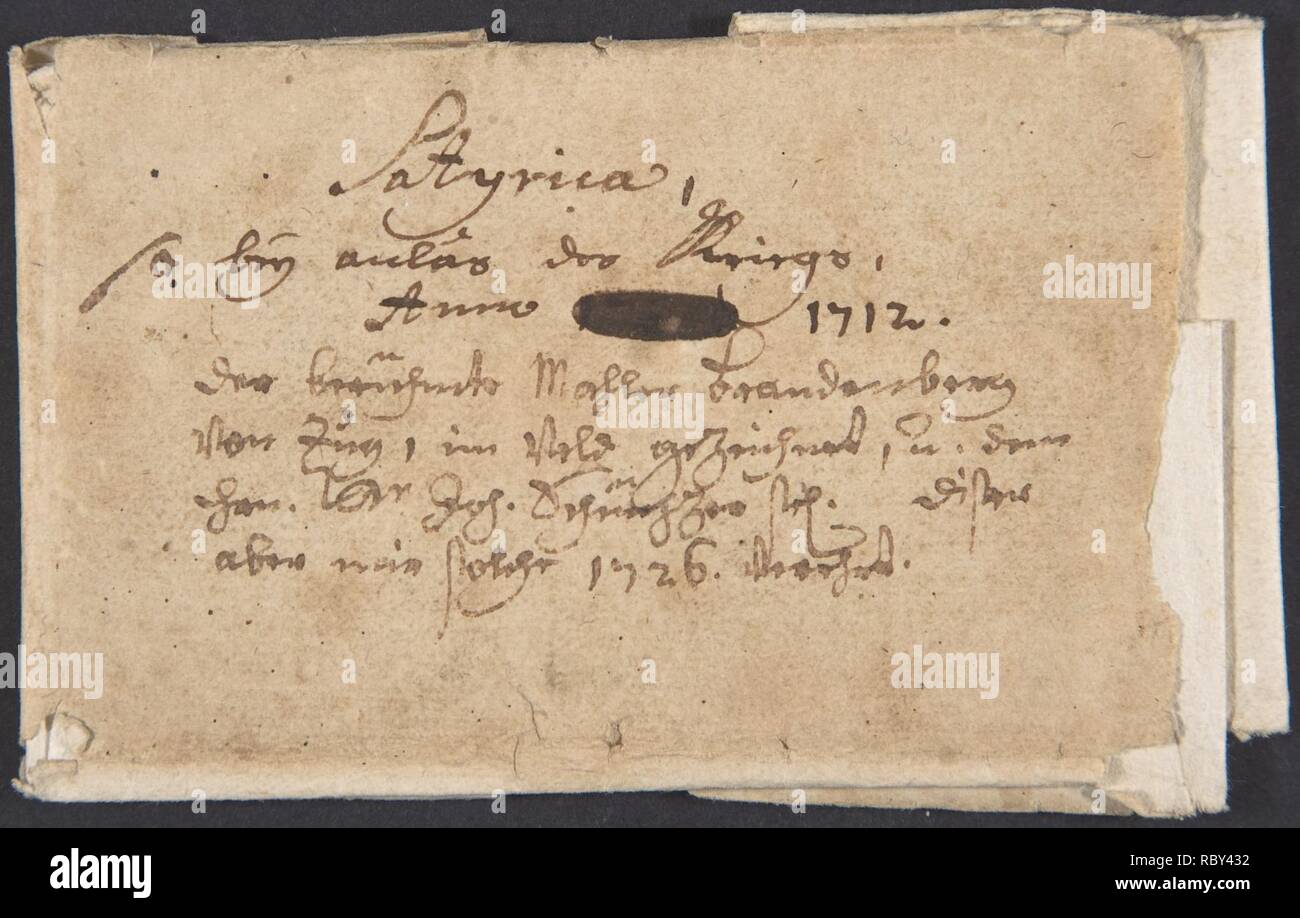 Satyrica,
so bey anlas des Kriegs,
Anno 1712.
der berühmte Mahler Brandenberg
von Zug, im Veld gezeichnet, u. dem
Joh. Scheuchzer sch. diser
aber mir solche 1726. verehrt.
alamy
Image ID: RBY432
www.alamy.com